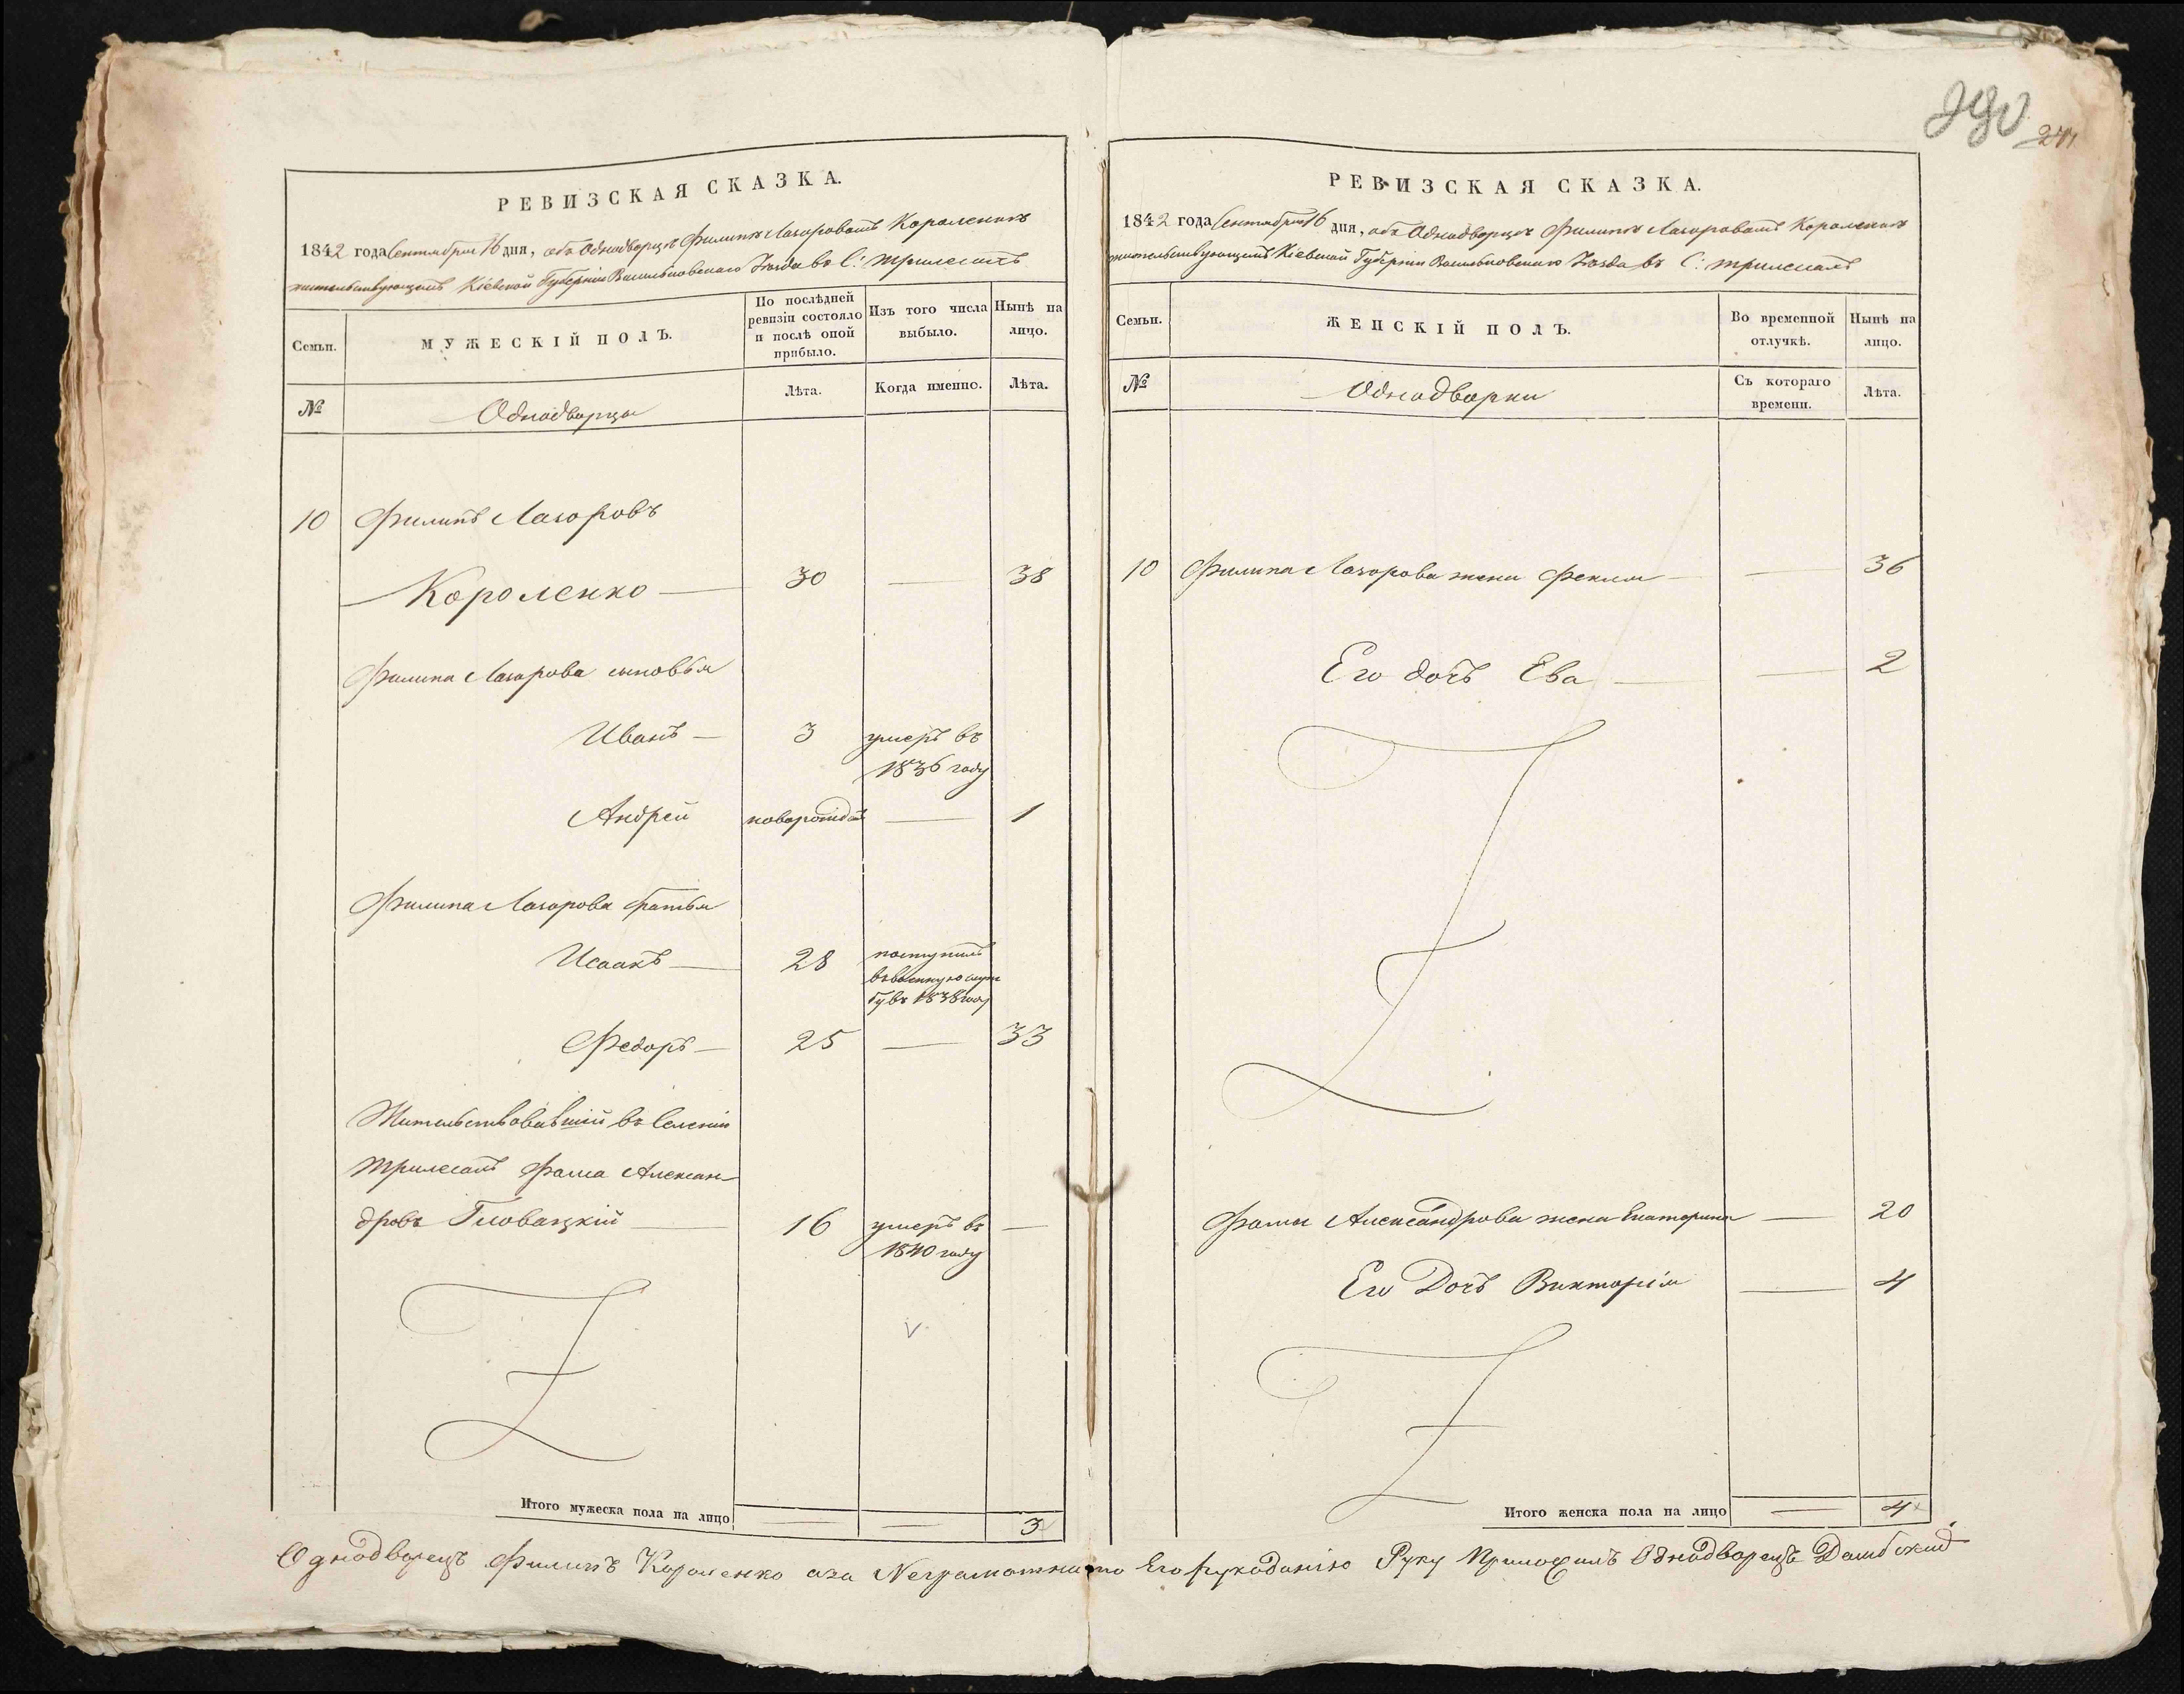 РЕВИЗСКАЯ СКАЗКА.
1842 года Сентября 16 дня, объ Однодворце Филипе Лазоровомъ Короленкѣ
жительствующемъ Кіевской Губерніи Васильковскаго Уѣзда въ С: Трилесахъ
Семьи.
МУЖЕСКІЙ ПОЛЪ.
По послѣдней ревизіи состояло и послѣ оной прибыло.
Изъ того числа выбыло.
Нынѣ на лицо.
№
Однодворцы
Лѣта.
Когда именно.
Лѣта.
10 Филипъ Лазоровъ
Короленко 30 — 38
Филипа Лазорова сыновья
Иванъ 3 умеръ въ
1836 году
Андрей новорожд — 1
Филипа Лазорова братья
Исаакъ 28 поступилъ
въ военную служ
бу въ 1838 году
Федоръ 25 — 33
Жительствовавшій въ Селеніи
Трилесахъ Фома Алексан-
дровъ Гловацкій 16 умеръ въ —
1840 году
Итого мужеска пола на лицо — — 3
244
РЕВИЗСКАЯ СКАЗКА.
1842 года Сентября 16 дня, объ Однодворце Филипе Лазоровомъ Короленкѣ
жительствующемъ Кіевской Губерніи Васильковскаго Уѣзда въ С: Трилесахъ
Семьи.
ЖЕНСКІЙ ПОЛЪ.
Во временной отлучкѣ.
Нынѣ на лицо.
№
Однодворки
Съ котораго времени.
Лѣта.
10 Филипа Лазорова жена Фекла — 36
Его дочь Ева — 2
Фомы Александрова жена Екатерина — 20
Его Дочь Викторія — 4
Итого женска пола на лицо — 4
Однодворецъ Филипъ Короленко аза Неграмотнаго Его рукоданію Руку Приложилъ Однодворецъ